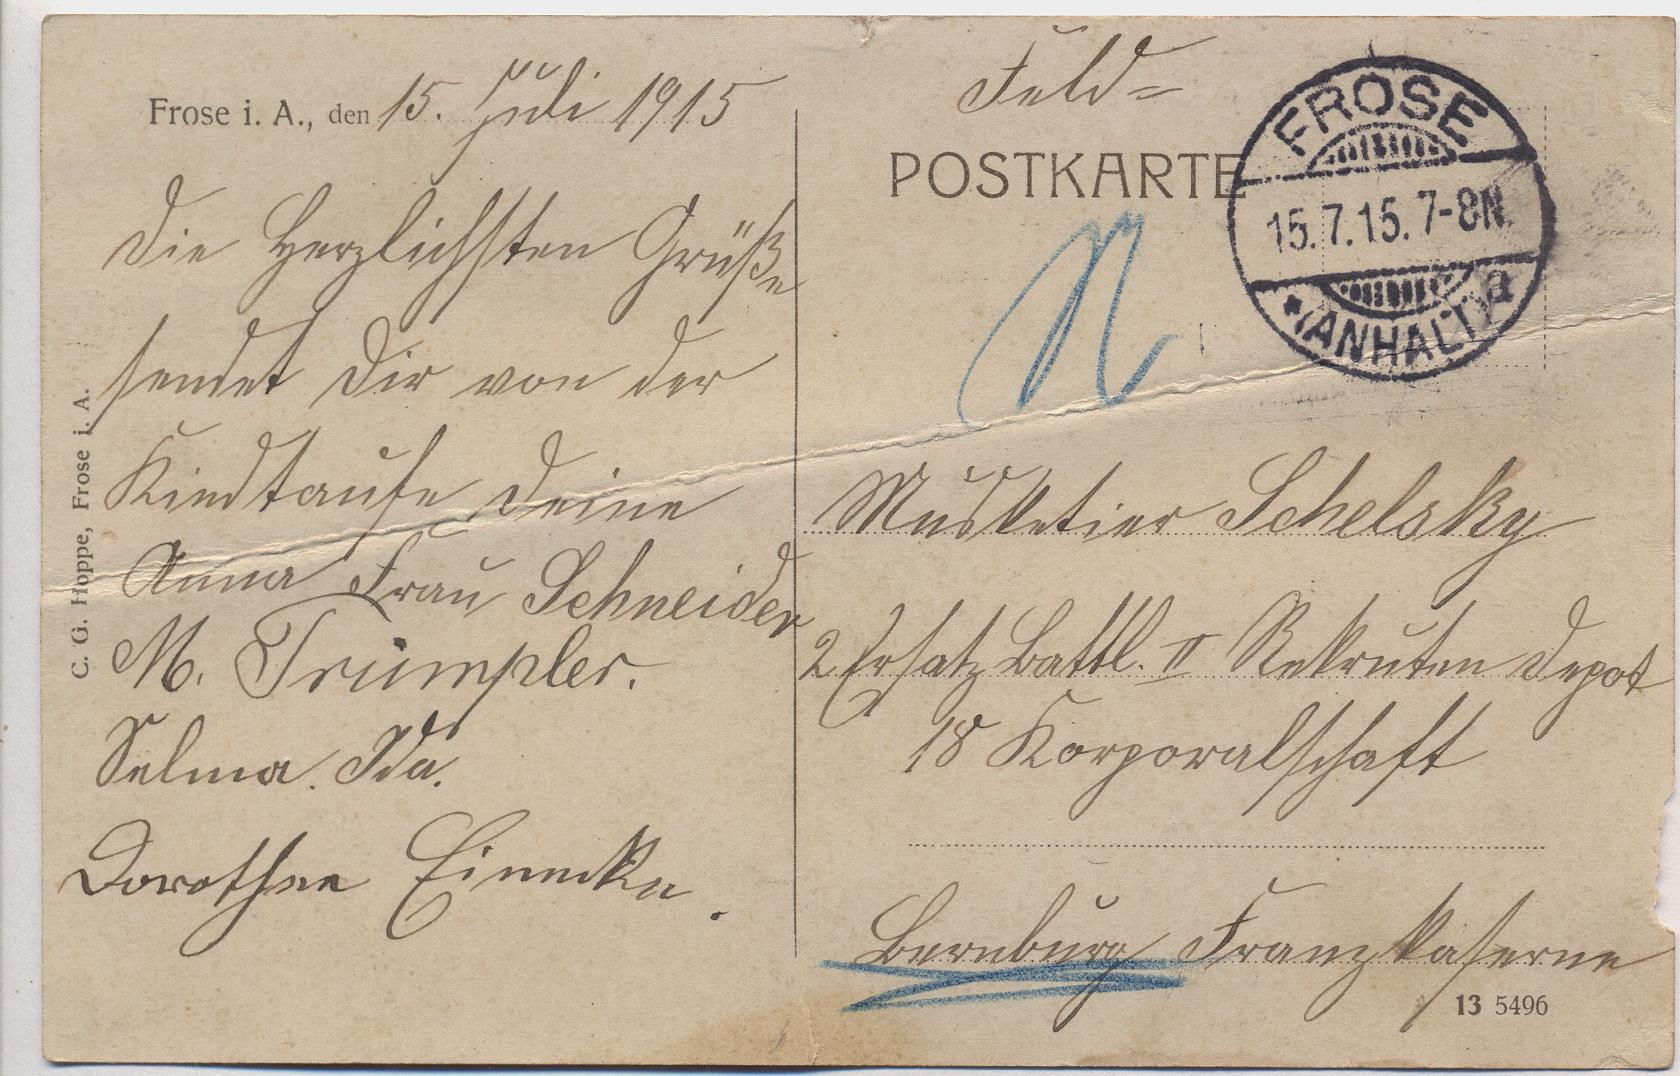 Frose i. A., den 15. Juli 1915
Die Herzlichsten Grüße
sendet Dir von der
Kindtaufe Deine
Anna Frau Schneider
M. Trümpler.
Selma. Ida.
Dorothee Einecke.
C. G. Hoppe, Frose i. A.
Feld=
POSTKARTE
FROSE
15.7.15. 7-8N.
* (ANHALT) a
Musketier Schelsky
2 Ersatz Battl. II Rekruten Depot
18 Korporalschaft
Bernburg Franzkaserne
13 5496